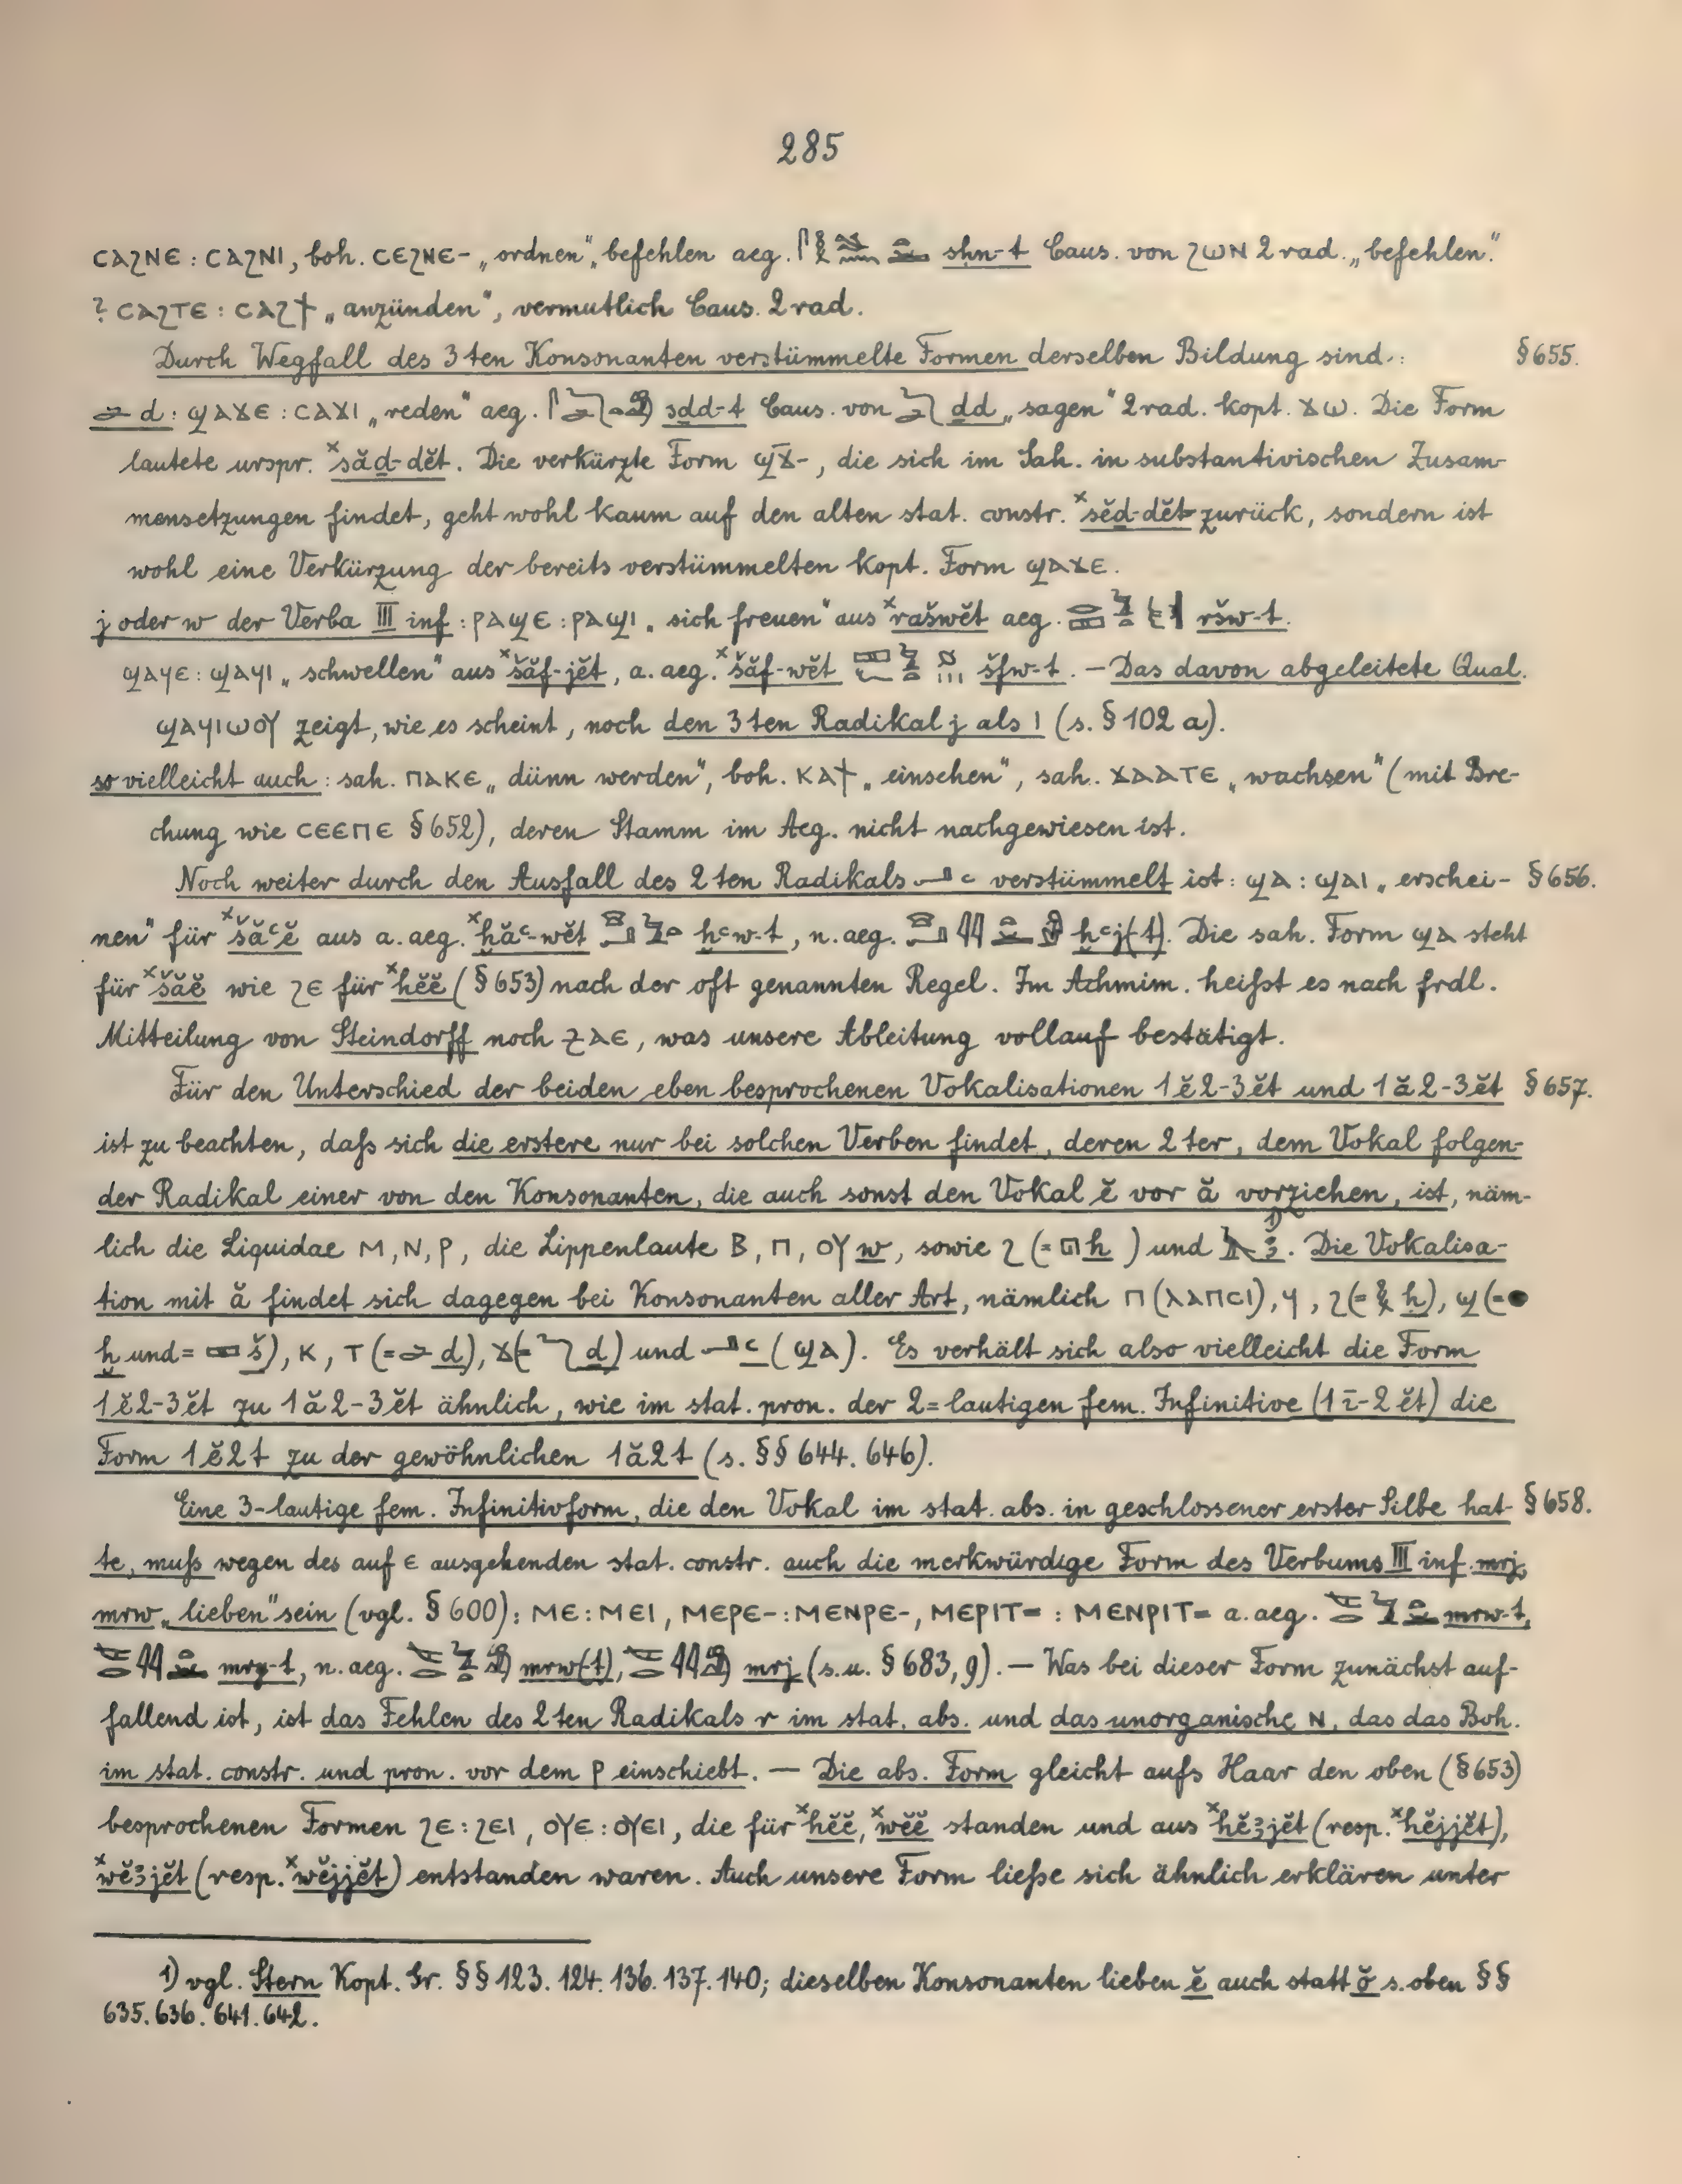 285
ⲥⲁϩⲛⲉ : ⲥⲁϩⲛⲓ, boh. ⲥⲉϩⲛⲉ- „ordnen“, „befehlen aeg. sḥn-t Caus. von ϩⲱⲛ 2 rad. „befehlen.“
? ⲥⲁϩⲧⲉ : ⲥⲁϩϯ „anzünden“, vermutlich Caus. 2 rad.
Durch Wegfall des 3ten Konsonanten verstümmelte Formen derselben Bildung sind: §655.
d: ϣⲁϫⲉ : ⲥⲁϫⲓ „reden“ aeg. sḏd-t Caus. von ḏd „sagen“ 2 rad. kopt. ϫⲱ. Die Form
lautete urspr. ˣsăḏ-dĕt. Die verkürzte Form ϣϫ̄-, die sich im Sah. in substantivischen Zusam-
mensetzungen findet, geht wohl kaum auf den alten stat. constr. ˣsĕḏ-dĕt zurück, sondern ist
wohl eine Verkürzung der bereits verstümmelten kopt. Form ϣⲁϫⲉ.
j oder w der Verba III inf : ⲣⲁϣⲉ : ⲣⲁϣⲓ „sich freuen“ aus ˣrašwĕt aeg. ršw-t.
ϣⲁϥⲉ : ϣⲁϥⲓ „schwellen“ aus ˣšăf-jĕt, a. aeg. ˣšăf-wĕt šfw-t. – Das davon abgeleitete Qual.
ϣⲁϥⲓⲱⲟⲩ zeigt, wie es scheint, noch den 3ten Radikal j als ⲓ (s. § 102 a).
so vielleicht auch : sah. ⲡⲁⲕⲉ „dünn werden“, boh. ⲕⲁϯ „einsehen“, sah. ϫⲁⲁⲧⲉ „wachsen“ (mit Bre-
chung wie ⲥⲉⲉⲡⲉ § 652), deren Stamm im Aeg. nicht nachgewiesen ist.
Noch weiter durch den Ausfall des 2ten Radikals ꜥ verstümmelt ist : ϣⲁ : ϣⲁⲓ „erschei- §656.
nen“ für ˣšăꜥĕ aus a. aeg. ˣḫăꜥ-wĕt ḫꜥw-t, n. aeg. ḫꜥj(t). Die sah. Form ϣⲁ steht
für ˣšăĕ wie ϩⲉ für ˣhĕĕ (§ 653) nach der oft genannten Regel. Im Achmim. heißt es nach frdl.
Mitteilung von Steindorff noch ⳉⲁⲉ, was unsere Ableitung vollauf bestätigt.
Für den Unterschied der beiden eben besprochenen Vokalisationen 1ĕ2-3ĕt und 1ă2-3ĕt §657.
ist zu beachten, daß sich die erstere nur bei solchen Verben findet, deren 2ter, dem Vokal folgen-
der Radikal einer von den Konsonanten, die auch sonst den Vokal ĕ vor ă vorziehen, ist, näm-
lich die Liquidae ⲙ, ⲛ, ⲣ, die Lippenlaute ⲃ, ⲡ, ⲟⲩ w, sowie ϩ (= h) und ꜣ. ¹⁾ Die Vokalisa-
tion mit ă findet sich dagegen bei Konsonanten aller Art, nämlich ⲡ (ⲗⲁⲡⲥⲓ), ϥ, ϩ (= ḥ), ϣ (=
ḫ und = š), ⲕ, ⲧ (= d), ϫ (= ḏ) und ꜥ (ϣⲁ). Es verhält sich also vielleicht die Form
1ĕ2-3ĕt zu 1ă2-3ĕt ähnlich, wie im stat. pron. der 2=lautigen fem. Infinitive (1ī-2ĕt) die
Form 1ĕ2t zu der gewöhnlichen 1ă2t (s. §§ 644. 646).
Eine 3-lautige fem. Infinitivform, die den Vokal im stat. abs. in geschlossener erster Silbe hat- §658.
te, muß wegen des auf ⲉ ausgehenden stat. constr. auch die merkwürdige Form des Verbums III inf. mrj,
mrw „lieben“ sein (vgl. § 600) : ⲙⲉ : ⲙⲉⲓ, ⲙⲉⲣⲉ- : ⲙⲉⲛⲣⲉ-, ⲙⲉⲣⲓⲧ= : ⲙⲉⲛⲣⲓⲧ= a. aeg. mrw-t,
mry-t, n. aeg. mrw(t), mrj (s. u. § 683, 9). – Was bei dieser Form zunächst auf-
fallend ist, ist das Fehlen des 2ten Radikals r im stat. abs. und das unorganische ⲛ, das das Boh.
im stat. constr. und pron. vor dem ⲣ einschiebt. – Die abs. Form gleicht aufs Haar den oben (§ 653)
besprochenen Formen ϩⲉ : ϩⲉⲓ, ⲟⲩⲉ : ⲟⲩⲉⲓ, die für ˣhĕĕ, ˣwĕĕ standen und aus ˣhĕꜣjĕt (resp. ˣhĕjjĕt),
ˣwĕꜣjĕt (resp. ˣwĕjjĕt) entstanden waren. Auch unsere Form ließe sich ähnlich erklären unter
1) vgl. Stern Kopt. Gr. §§ 123. 124. 136. 137. 140; dieselben Konsonanten lieben ĕ auch statt ŏ s. oben §§
635. 636. 641. 642.